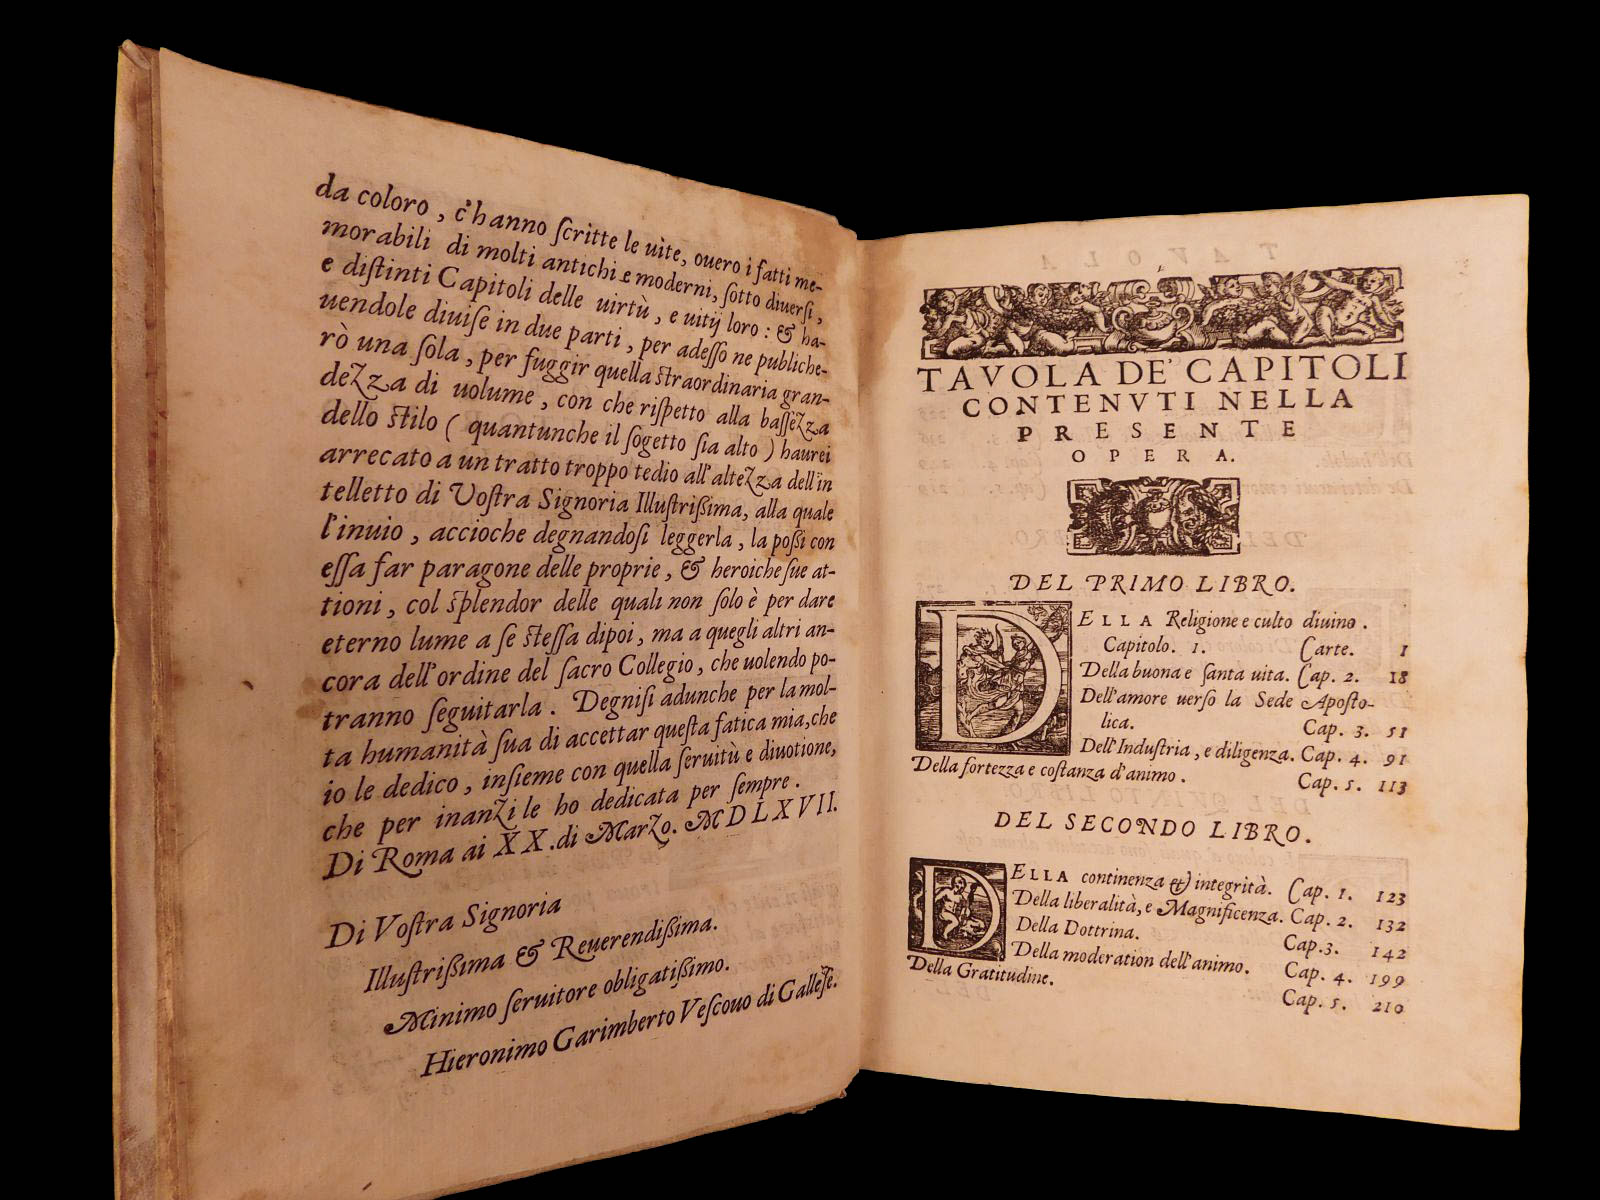 da coloro, c'hanno ſcritte le uite, ouero i fatti me-
morabili di molti antichi e moderni, ſotto diuerſi,
e diſtinti Capitoli delle uirtù, e uitij loro: & ha-
uendole diuiſe in due parti, per adeſſo ne publiche-
rò una ſola, per fuggir quella ſtraordinaria gran-
dezza di uolume, con che riſpetto alla baſſezza
dello ſtilo ( quantunche il ſogetto ſia alto ) haurei
arrecato a un tratto troppo tedio all'altezza dell'in
telletto di Voſtra Signoria Illuſtriſsima, alla quale
l'inuio, accioche degnandoſi leggerla, la poſsi con
eſſa far paragone delle proprie, & heroiche ſue at-
tioni, col ſplendor delle quali non ſolo è per dare
eterno lume a ſe ſteſſa dipoi, ma a quegli altri an-
cora dell'ordine del ſacro Collegio, che uolendo po-
tranno ſeguitarla. Degniſi adunche per la mol-
ta humanità ſua di accettar queſta fatica mia, che
io le dedico, inſieme con quella ſeruitù e diuotione,
che per inanzi le ho dedicata per ſempre.
Di Roma ai XX. di Marzo. MDLXVII.
Di Voſtra Signoria
Illuſtriſsima & Reuerendiſsima.
Minimo ſeruitore obligatiſsimo.
Hieronimo Garimberto Veſcouo di Galleſe.
TAVOLA DE' CAPITOLI
CONTENVTI NELLA
PRESENTE
OPERA.
DEL PRIMO LIBRO.
DELLA Religione e culto diuino.
Capitolo. 1. Carte. 1
Della buona e ſanta uita. Cap. 2. 18
Dell'amore uerſo la Sede Apoſto-
lica. Cap. 3. 51
Dell'Induſtria, e diligenza. Cap. 4. 91
Della fortezza e coſtanza d'animo. Cap. 5. 113
DEL SECONDO LIBRO.
DELLA continenza & integrità. Cap. 1. 123
Della liberalità, e Magnificenza. Cap. 2. 132
Della Dottrina. Cap. 3. 142
Della moderation dell'animo. Cap. 4. 199
Della Gratitudine. Cap. 5. 210